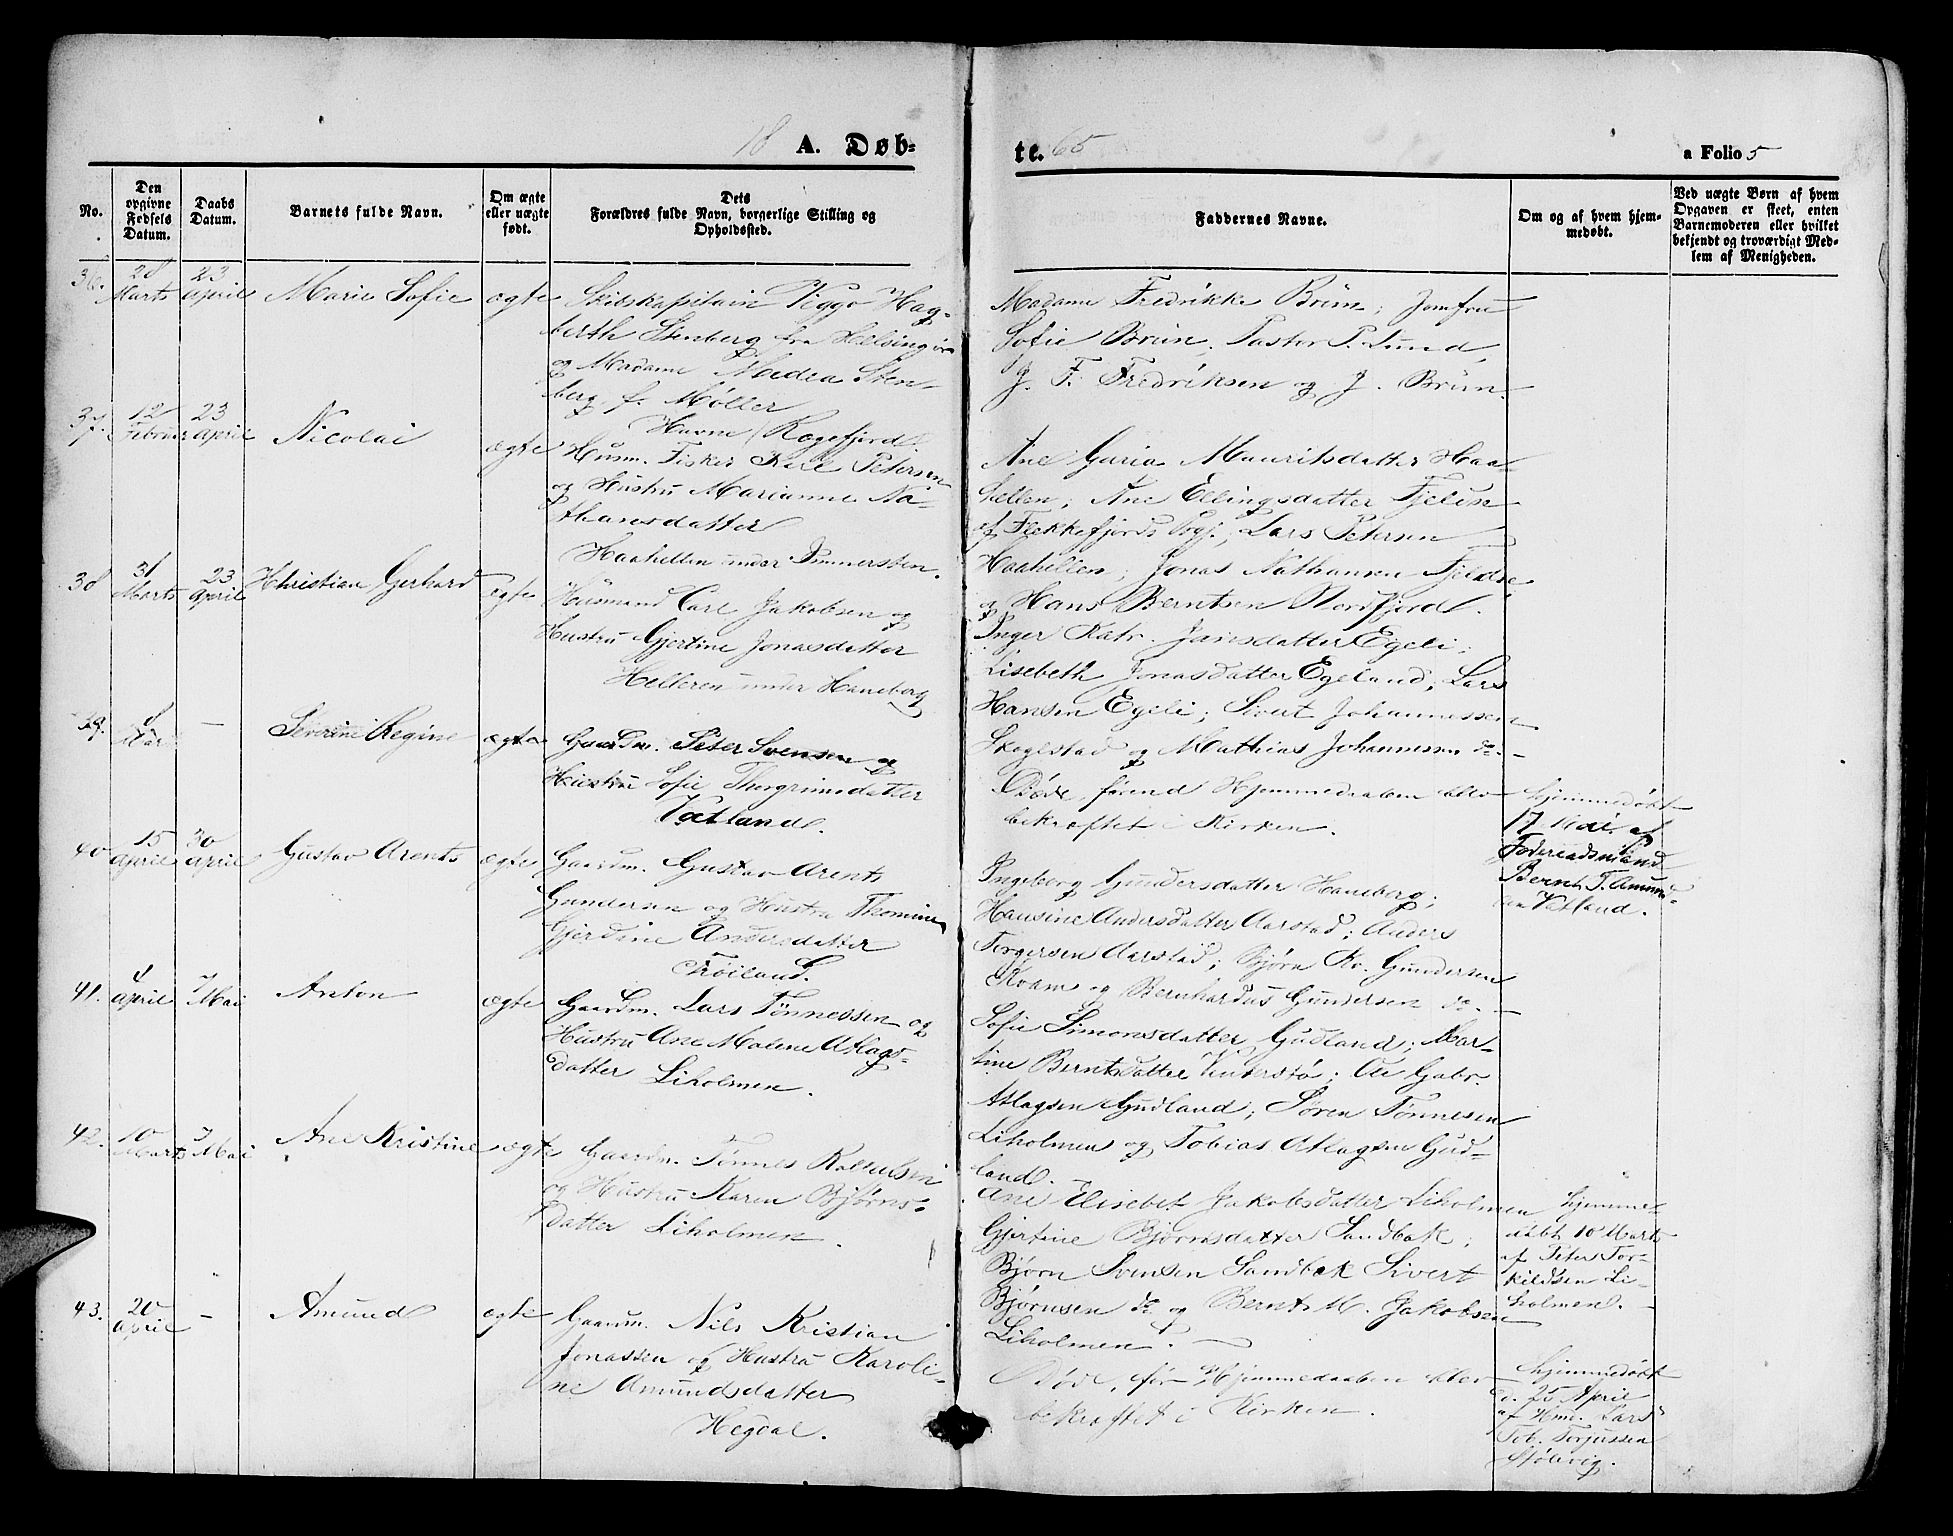 18 A. Døb-
te. 65
a Folio 5
No.
Den opgivne Fødsels Datum.
Daabs Datum.
Barnets fulde Navn.
Om ægte eller uægte født.
Dets
Forældres fulde Navn, borgerlige Stilling og
Opholdssted.
Faddernes Navne.
Om og af hvem hjem-
medøbt.
Ved uægte Børn af hvem
Opgaven er skeet, enten
Barnemoderen eller hvilket
bekjendt og troværdigt Med-
lem af Menigheden.
36. 28 Marts 23 April Marie Sofie ægte
Skibskapitain Viggo Hag-
berth Stenberg fra Helsingør
og Madame Medea Sten-
berg f. Møller
Havne (Rægefjord)
Madame Fredrikke Brün; Jomfru
Sofie Brün, Pastor P. Lund,
J. F. Fredriksen og J. Brün.
37. 12 Februar 23 April Nicolai ægte
Husm. Fisker Karl Petersen
og Hustru Marianne Na-
thansdatter
Haahellen under Immersten.
Ane Guria Mauritsdatter Haa-
hellen; Ane Ellingsdatter Fjeldse
af Flekkefjords Prgj.; Lars Petersen
Haahellen; Jonas Nathansen Fjeldse
og Hans Berntsen Nordfjord.
38 31 Marts 23 April Christian Gerhard ægte
Husmand Carl Jakobsen og
Hustru Gjertine Jonasdatter
Helleren under Haneberg
Inger Katr. Jansdatter Egeli;
Lisebeth Jonasdatter Egeland; Lars
Hansen Egeli; Sivert Johannessen
Skogestad og Mathias Johannessen do. -
39. 8 Mai - Severine Regine ægte
Gaardm. Peter Svensen og
Hustru Sofie Thorgrimsdatter
Vatland.
Døde, førend Hjemmedaaben blev
bekræftet i Kirken.
Hjemmedøbt
17 Mai af
Føderaadsmand
Bernt T. Amund-
sen Vatland.
40 15 April 30 April Gustav Arents ægte
Gaardm. Gustav Arents
Gundersen og Hustru Thomine
Gjerdine Andersdatter
Trøiland.
Ingeborg Gundersdatter Haneberg;
Hansine Andersdatter Aarstad; Anders
Torgersen Aarstad; Bjørn Kr. Gundersen
Kvam og Bernhardus Gundersen do. -
41. 4 April 7 Mai Anton ægte
Gaardm. Lars Tønnessen og
Hustru Ane Malene Atlags-
datter Liholmen.
Sofie Simonsdatter Gudland; Mar-
tine Berntsdatter Vinterstø; Ole Gabr.
Atlagsen Gudland; Søren Tønnesen
Liholmen og Tobias Atlagsen Gud-
land. -
42. 10 Marts 7 Mai Ane Kristine ægte
Gaardm. Tønnes
og Hustru Karen Bjørns-
datter Liholmen.
Ane Elisebet Jakobsdatter Liholmen
Gjertine Bjørnsdatter Sandbæk;
Bjørn Svensen Sandbæk Sivert
Bjørnsen do. og Bernt M. Jakobsen
Liholmen.
hjemme-
døbt 10 Marts
af Peter Tor-
kildsen Li-
holmen. -
43. 20 April - Amund ægte
Gaardm. Nils Kristian
Jonassen og Hustru Karoli-
ne Amundsdatter
Hegdal.
Døde, før Hjemmedaaben blev
bekræftet i Kirken.
hjemmedøbt
d. 25 April
af Hmd. Lars
Tob. Torjussen
Stølevig.